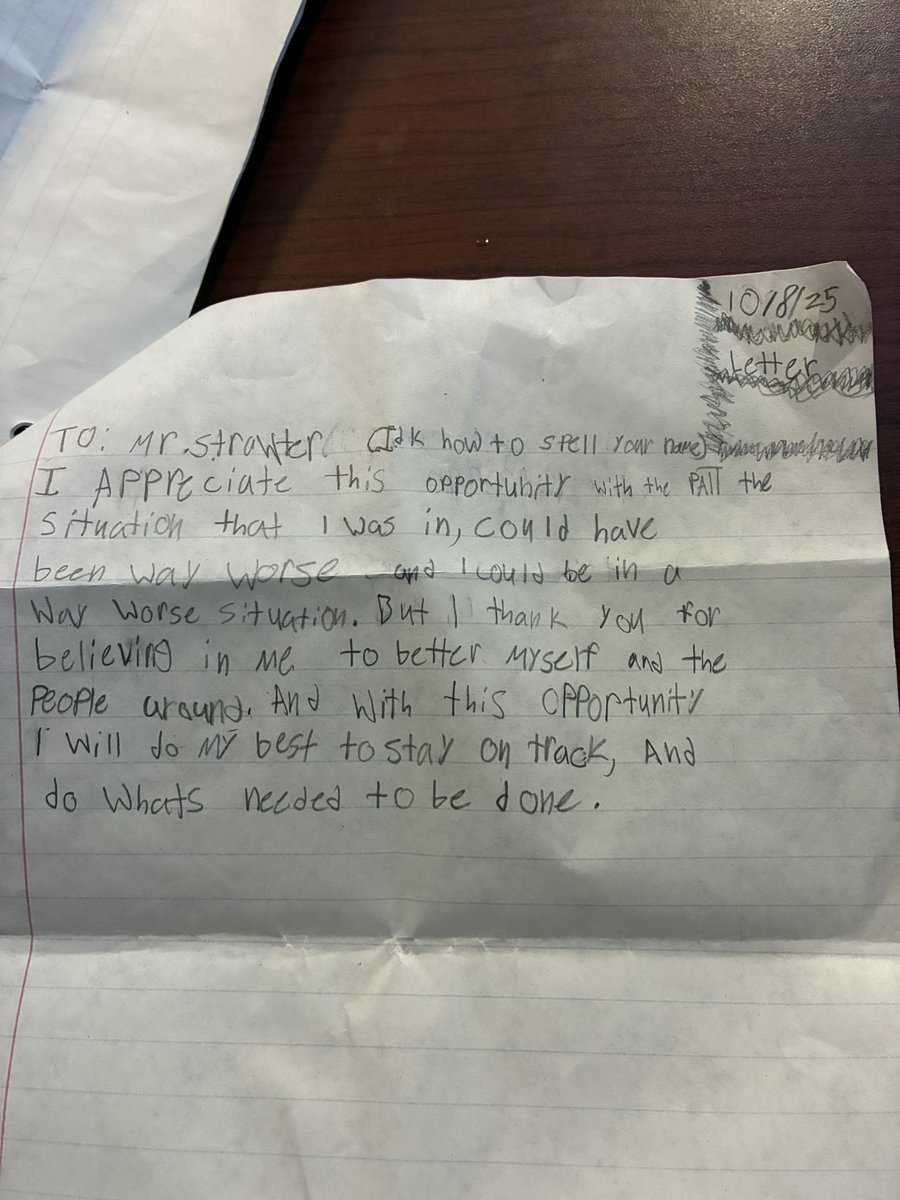 10/8/25
Letter
TO: Mr. Strowter (Idk how to spell your name)
I Appreciate this opportunity with the PATT the
situation that I was in, could have
been way worse and I could be in a
way worse situation. But I thank you for
believing in me to better myself and the
people around. And with this opportunity
I will do my best to stay on track, And
do whats needed to be done.